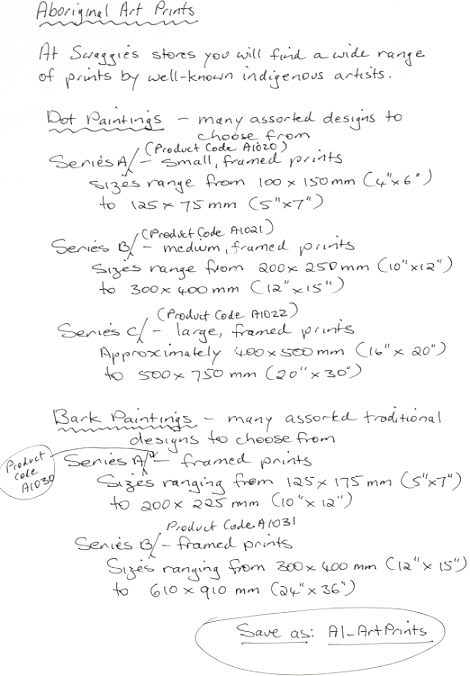 Aboriginal Art Prints
At Swaggies stores you will find a wide range
of prints by well-known indigenous artists.
Dot Paintings – many assorted designs to
choose from
(Product Code A1020)
Series A – small, framed prints
Sizes range from 100 x 150mm (4"x6")
to 125 x 75 mm (5"x7")
(Product Code A1021)
Series B – medium, framed prints
Sizes range from 200 x 250mm (10"x12")
to 300 x 400 mm (12"x15")
(Product Code A1022)
Series C – large, framed prints
Approximately 400 x 500 mm (16" x 20")
to 500 x 750 mm (20" x 30")
Bark Paintings – many assorted traditional
designs to choose from
Product
code
A1030
Series A – framed prints
Sizes ranging from 125 x 175 mm (5"x7")
to 200 x 225 mm (10" x 12")
Product Code A1031
Series B – framed prints
Sizes ranging from 300 x 400 mm (12" x 15")
to 610 x 910 mm (24" x 36")
Save as: A1-ArtPrints